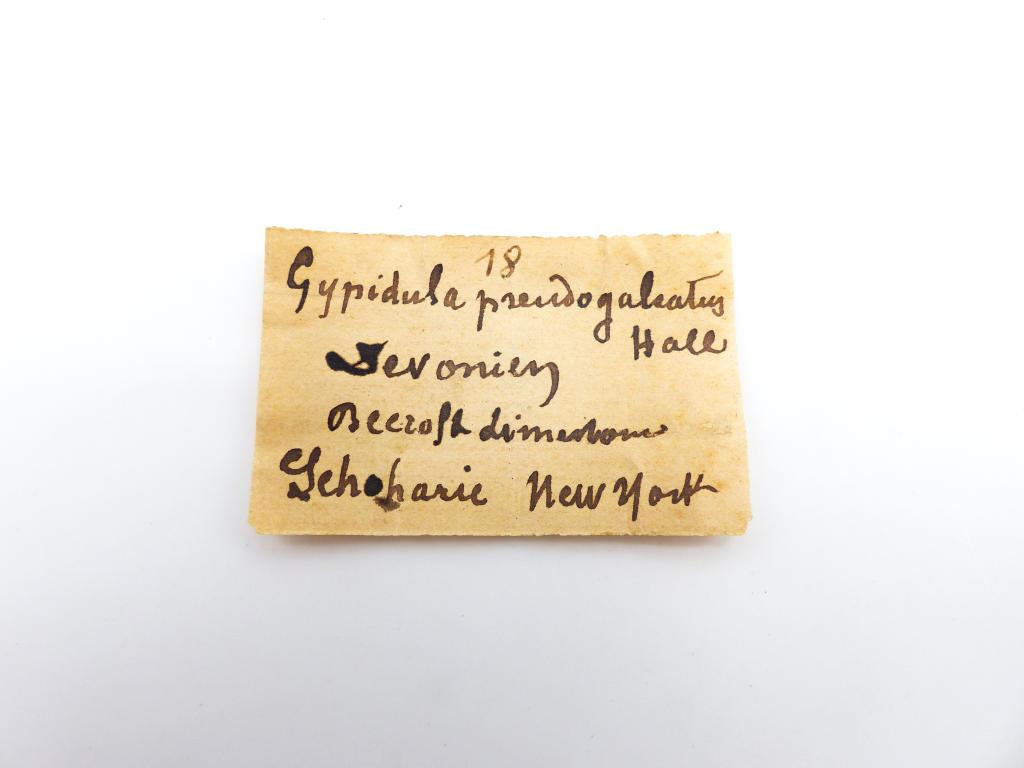 18
Gypidula pseudogaleatus
Hall
Devonien
Becroft Limestone
Schoharie New York